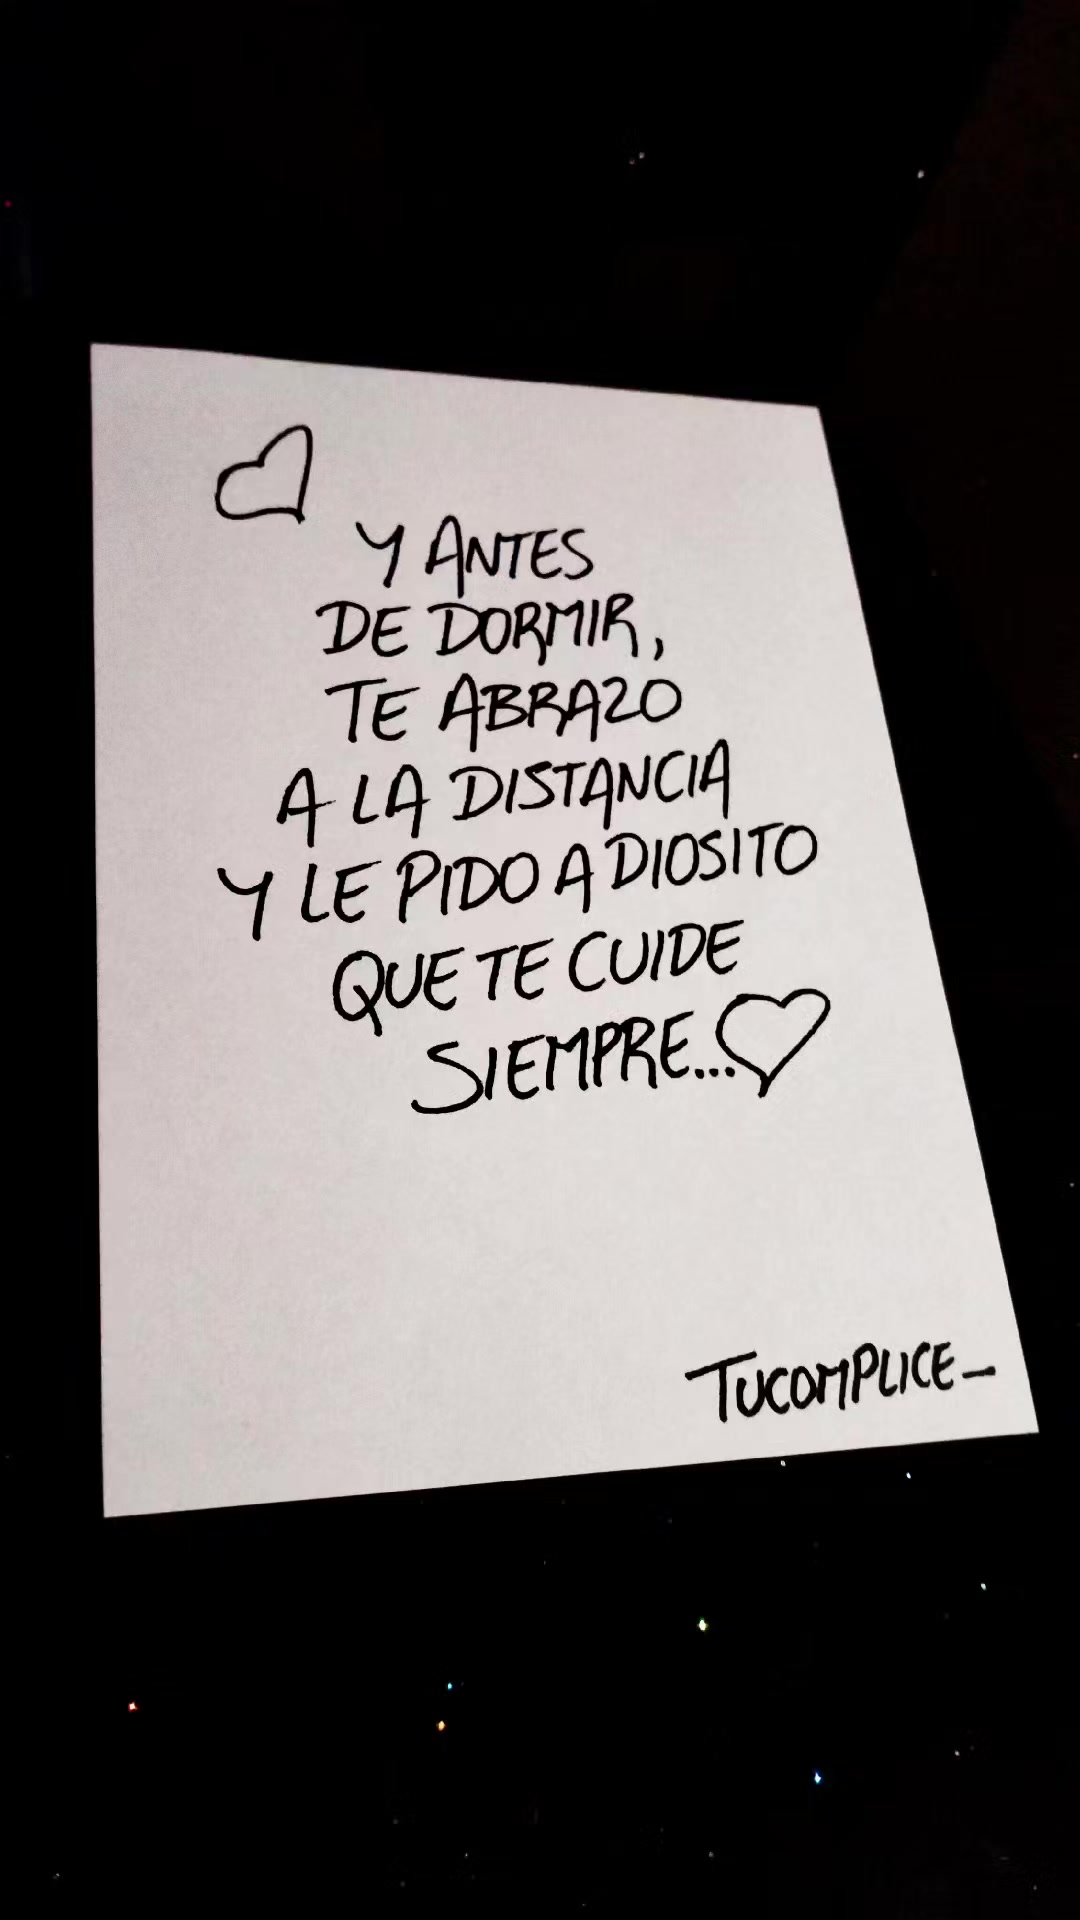 Y ANTES
DE DORMIR,
TE ABRAZO
A LA DISTANCIA
Y LE PIDO A DIOSITO
QUE TE CUIDE
SIEMPRE...
TUCOMPLICE_